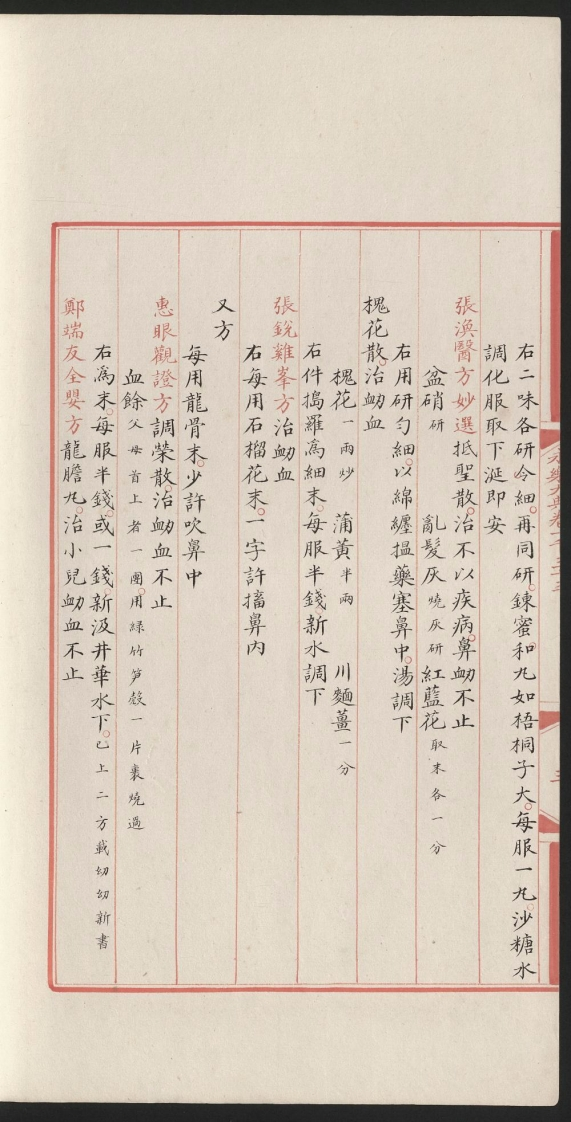 右二味各研令細。再同研。錬蜜。和九如梧桐子大。每服一九。沙糖水
調化服取下涎即安
張渙醫方妙選抵聖散。治不以疾病。鼻衂不止
盆硝研 亂髮灰燒灰研 紅藍花取末各一分
右用研勻細。以綿纏揾藥塞鼻中。湯調下
槐花散。治衂血
槐花一兩炒 蒲黃半兩 川麵薑一分
右件搗羅爲細末。每服半錢。新水調下
張銳雞峯方治衂血
右每用石榴花末。一字許搐鼻內
又方
每用龍骨末。少許吹鼻中
惠眼觀證方調榮散治衂血不止
血餘父母首上者一團。用綠竹笋殼一片裹燒過
右爲末。每服半錢。或一錢。新汲井華水下。已上二方載幼幼新書
鄭端友全嬰方龍膽九。治小兒衂血不止